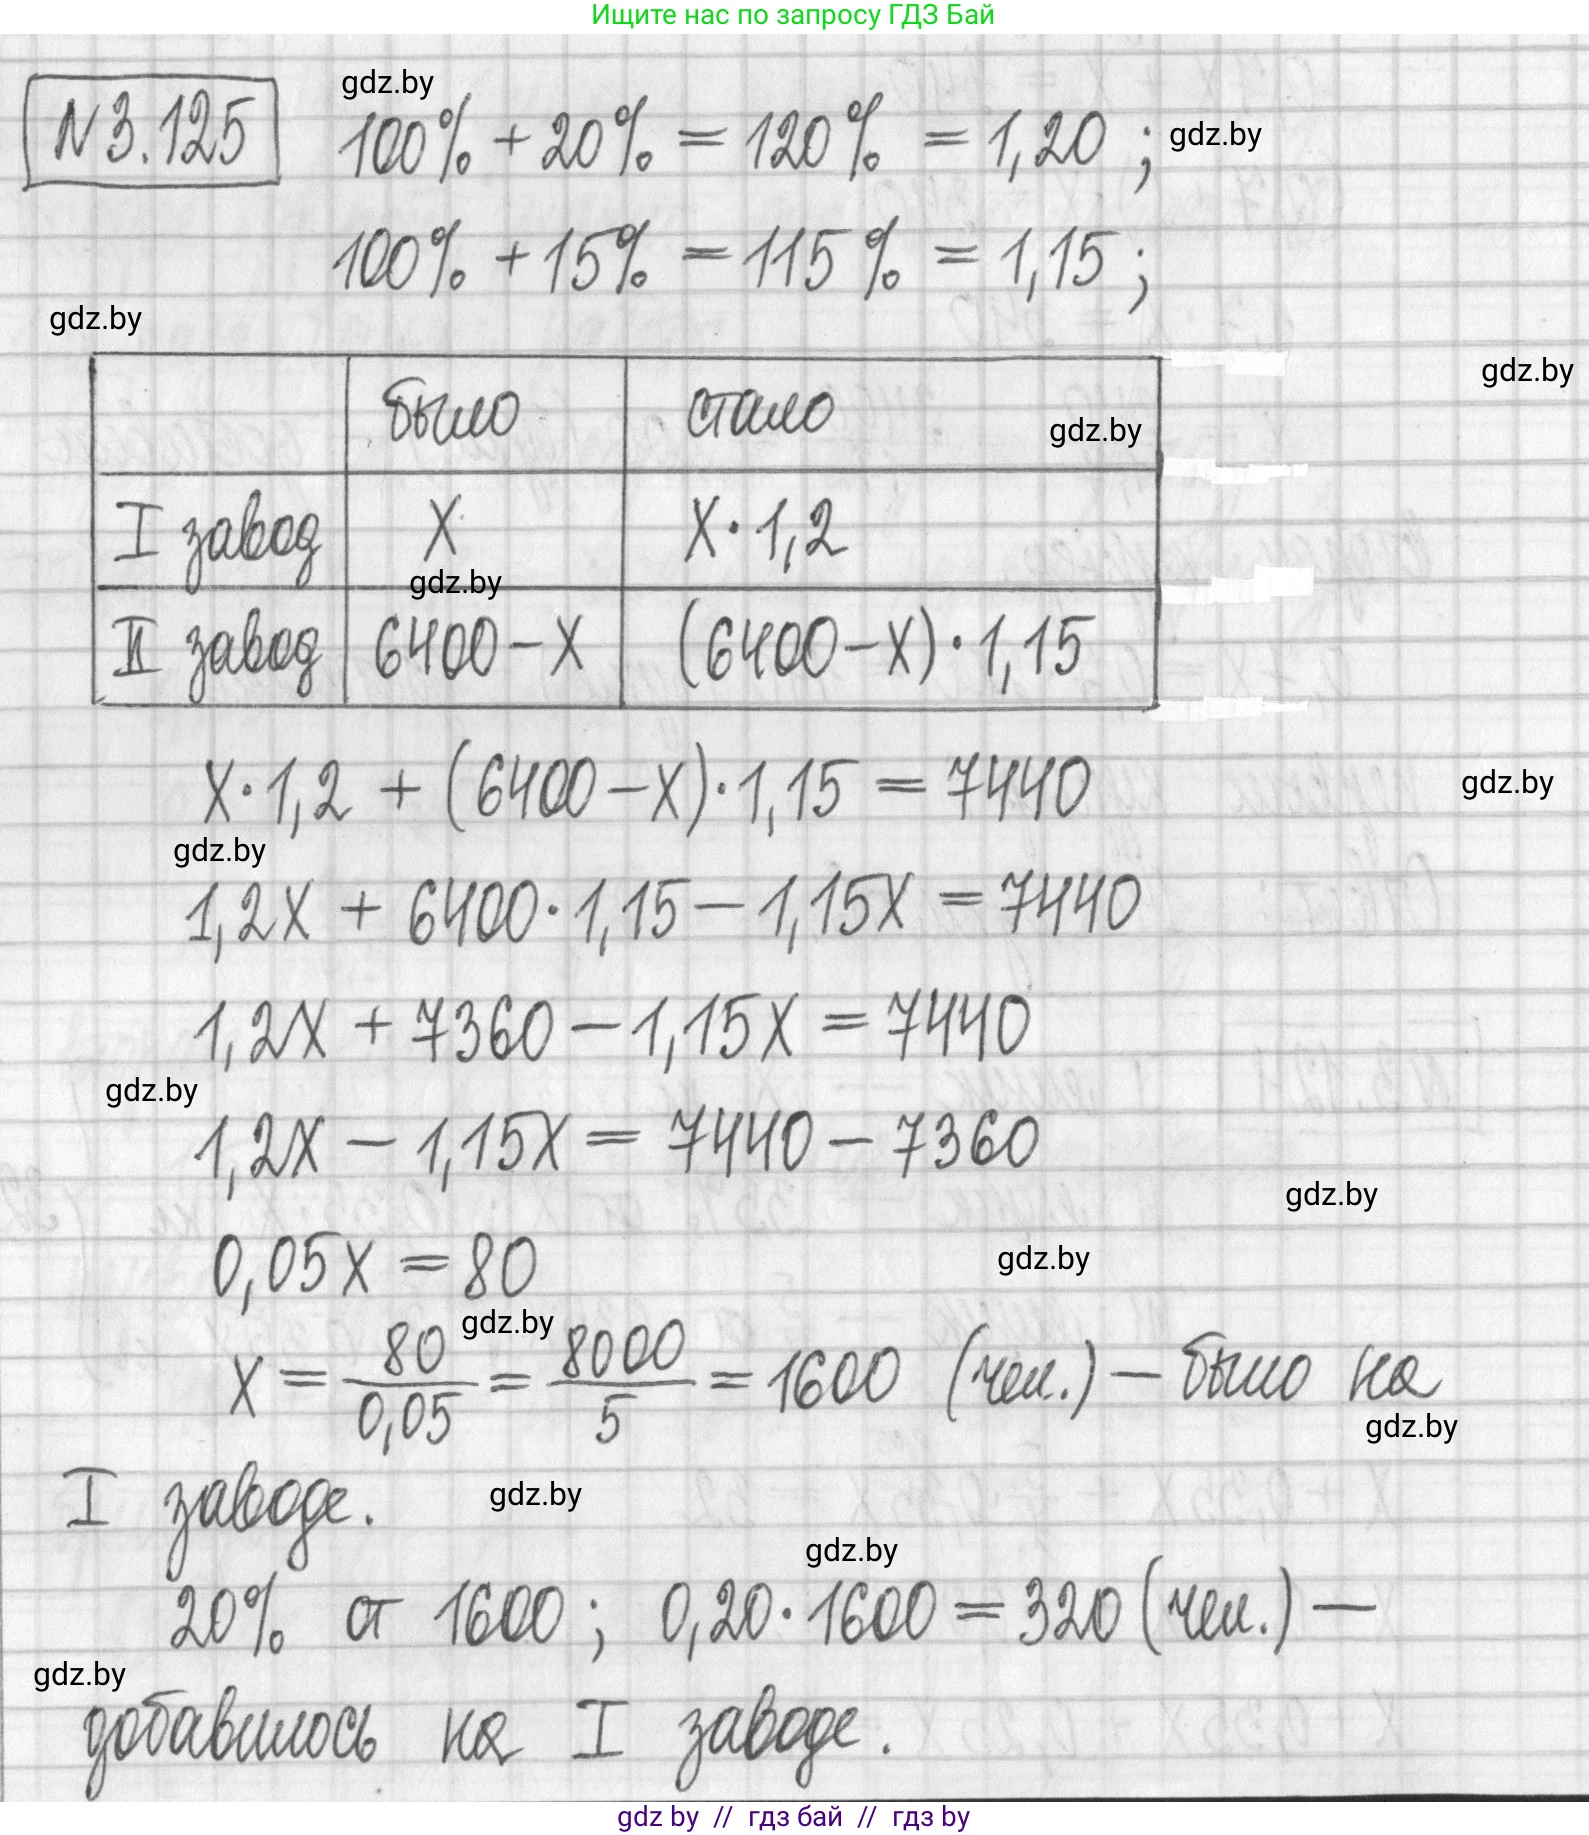 Ищите нас по запросу ГДЗ Бай
gdz.by
N 3.125 100% + 20% = 120% = 1,20 ; gdz.by
100% + 15% = 115% = 1,15 ;
gdz.by
gdz.by
было стало gdz.by
I завод X X · 1,2
gdz.by
II завод 6400 – X (6400 – X) · 1,15
X · 1,2 + (6400 – X) · 1,15 = 7440 gdz.by
gdz.by
1,2X + 6400 · 1,15 – 1,15X = 7440
1,2X + 7360 – 1,15X = 7440
gdz.by
1,2X – 1,15X = 7440 – 7360
gdz.by
0,05X = 80 gdz.by
gdz.by
X = 80/0,05 = 8000/5 = 1600 (чел.) – было на
gdz.by
I заводе. gdz.by
gdz.by
20% от 1600 ; 0,20 · 1600 = 320 (чел.) –
gdz.by
добавилось на I заводе.
gdz by // гдз бай // гдз by